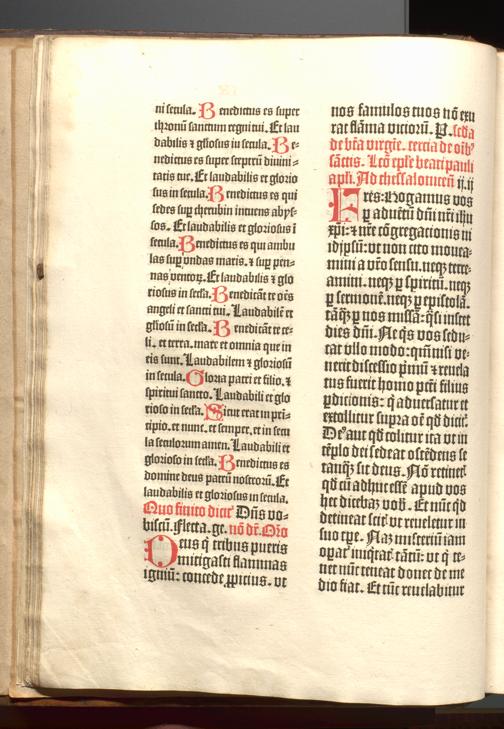 ni secula. Benedictus es super
thronū sanctum regni tui. Et lau
dabilis ⁊ gl'iosus in secula. Be-
nedictus es super sceptrū diuini-
tatis tue. Et laudabilis et glorio
sus in secula. Benedictus es qui
sedes sup̱ cherubin intuens abys-
sos. Et laudabilis et gloriosus ī
secula. Benedictus es qui ambu
las sup̱ vndas maris. ⁊ sup̱ pen-
nas ventoꝝ. Et laudabilis ⁊ glo
riosus in sec̄la. Benedicāt te oēs
angeli et sancti tui. Laudabilē et
gl'iosū in sec̄la. Benedicāt te ce-
li. et terra. mare et omnia que in
eis sunt. Laudabilem ⁊ gloriosū
in secula. Gloria patri et filio. ⁊
spiritui sancto. Laudabili et glo
rioso in sec̄la. Sicut erat in pri-
cipio. et nunc. et semper. et in secu
la seculorum amen. Laudabili et
glorioso in sec̄la. Benedictus es
domine deus patrū nostrorū. Et
laudabilis et gloriosus in secula.
Quo finito dicit' Dn̄s vo-
biscū. Flecta. ge. nō dr̄. Orō
Deus q̇ tribus pueris
mitigasti flammas
igniū: concede ꝓpicius. vt
nos famulos tuos nō exu
rat flāma viciorū. P. sc̄da
de bt̄a virgīe. tercia de oīb'
sāctis. Lcō ep̄le beati pauli
apl̄i. Ad thessalonicen̄ ij. ij
Fr̄es: Rogamus vos
ꝑ aduētū dn̄i nr̄i ihū
xp̄i: ⁊ nr̄e cōgregacionis in
idip̄sū: vt non cito mouea-
mini a vr̄o sensu. neqꝫ terre-
amini. neqꝫ ꝑ spiritū. neqꝫ
ꝑ sermonē. neqꝫ ꝑ epistolā.
tāqꝫ ꝑ nos missā: q̄si instet
dies dn̄i. Ne q̇s vos sedu-
cat vllo modo: qm̄ nisi ve-
nerit discessio p̄mū ⁊ reuela
tus fuerit homo pctī filius
ꝑdicionis: q̇ aduersatur et
extollitur supra oē qd̄ dicit'.
De' aut qd̄ colitur ita vt in
tēplo dei sedeat ostēdens se
tanqꝫ sit deus. Nō retinet'
qd̄ cū adhuc essē apud vos
hec dicebā vob'. Et nūc qd̄
detineat scit' vt reueletur in
suo tp̄e. Nā misteriū iam
opat' iniqtat' tātū: vt q̇ te-
net nūc teneat donec de me
dio fiat. Et tūc reuelabitur